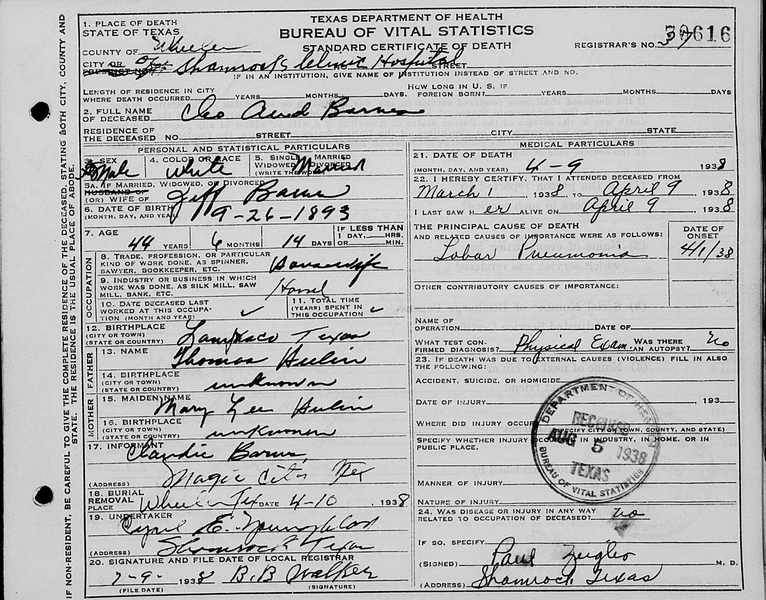 TEXAS DEPARTMENT OF HEALTH
BUREAU OF VITAL STATISTICS
STANDARD CERTIFICATE OF DEATH
1. PLACE OF DEATH
STATE OF TEXAS
COUNTY OF Wheeler
REGISTRAR'S NO. 37
30616
CITY OR Shamrock Clinic Hospital STREET
IF IN AN INSTITUTION, GIVE NAME OF INSTITUTION INSTEAD OF STREET AND NO.
LENGTH OF RESIDENCE IN CITY WHERE DEATH OCCURRED YEARS MONTHS DAYS
HOW LONG IN U. S. IF FOREIGN BORN? YEARS MONTHS DAYS
2. FULL NAME OF DECEASED Barnes
RESIDENCE OF THE DECEASED NO. STREET CITY STATE
PERSONAL AND STATISTICAL PARTICULARS
3. Male
4. COLOR OR RACE White
5. SINGLE MARRIED WIDOWED DIVORCED (WRITE THE WORD) Married
5A. IF MARRIED, WIDOWED, OR DIVORCED
HUSBAND OF
(OR) WIFE OF Jeff Barnes
6. DATE OF BIRTH (MONTH, DAY, AND YEAR) 9-26-1893
7. AGE 44 YEARS 6 MONTHS 14 DAYS IF LESS THAN 1 DAY, HRS. OR MIN.
OCCUPATION
8. TRADE, PROFESSION, OR PARTICULAR KIND OF WORK DONE, AS SPINNER, SAWYER, BOOKKEEPER, ETC. Housewife
9. INDUSTRY OR BUSINESS IN WHICH WORK WAS DONE, AS SILK MILL, SAW MILL, BANK, ETC.
10. DATE DECEASED LAST WORKED AT THIS OCCUPATION (MONTH AND YEAR) ✓
11. TOTAL TIME (YEARS) SPENT IN THIS OCCUPATION ✓
12. BIRTHPLACE (CITY OR TOWN) (STATE OR COUNTRY) Texas
FATHER
13. NAME Thomas Hulin
14. BIRTHPLACE (CITY OR TOWN) (STATE OR COUNTRY) unknown
MOTHER
15. MAIDEN NAME Mary Lee Hulin
16. BIRTHPLACE (CITY OR TOWN) (STATE OR COUNTRY) unknown
17. INFORMANT Claudie Barnes
(ADDRESS) Magic City Tex
18. BURIAL REMOVAL
PLACE Wheeler Tex DATE 4-10 1938
19. UNDERTAKER E. Youngblood
(ADDRESS) Shamrock Texas
20. SIGNATURE AND FILE DATE OF LOCAL REGISTRAR
7-9- 1938 B.B Walker
(FILE DATE) (SIGNATURE)
MEDICAL PARTICULARS
21. DATE OF DEATH (MONTH, DAY, AND YEAR) 4-9 1938
22. I HEREBY CERTIFY, THAT I ATTENDED DECEASED FROM
March 1 1938 TO April 9 1938
I LAST SAW H er ALIVE ON April 9 1938
THE PRINCIPAL CAUSE OF DEATH AND RELATED CAUSES OF IMPORTANCE WERE AS FOLLOWS:
DATE OF ONSET
Lobar Pneumonia 4/1/38
OTHER CONTRIBUTORY CAUSES OF IMPORTANCE:
NAME OF OPERATION DATE OF
WHAT TEST CONFIRMED DIAGNOSIS? Physical Exam. WAS THERE AN AUTOPSY? no
23. IF DEATH WAS DUE TO EXTERNAL CAUSES (VIOLENCE) FILL IN ALSO THE FOLLOWING:
ACCIDENT, SUICIDE, OR HOMICIDE
DATE OF INJURY 193
WHERE DID INJURY OCCUR (SPECIFY CITY OR TOWN, COUNTY, AND STATE)
SPECIFY WHETHER INJURY OCCURRED IN INDUSTRY, IN HOME, OR IN PUBLIC PLACE.
MANNER OF INJURY
NATURE OF INJURY
24. WAS DISEASE OR INJURY IN ANY WAY RELATED TO OCCUPATION OF DECEASED? no
IF SO, SPECIFY
(SIGNED) Paul Zeigler M. D.
(ADDRESS) Shamrock, Texas
DEPARTMENT OF HEALTH
RECEIVED
AUG 5 1938
TEXAS
BUREAU OF VITAL STATISTICS
IF NON-RESIDENT, BE CAREFUL TO GIVE THE COMPLETE RESIDENCE OF THE DECEASED, STATING BOTH CITY, COUNTY AND
STATE. THE RESIDENCE IS THE USUAL PLACE OF ABODE.